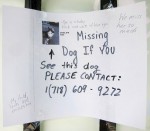 Missing
Dog If You
See this dog
PLEASE CONTACT:
1(718) 609-9272